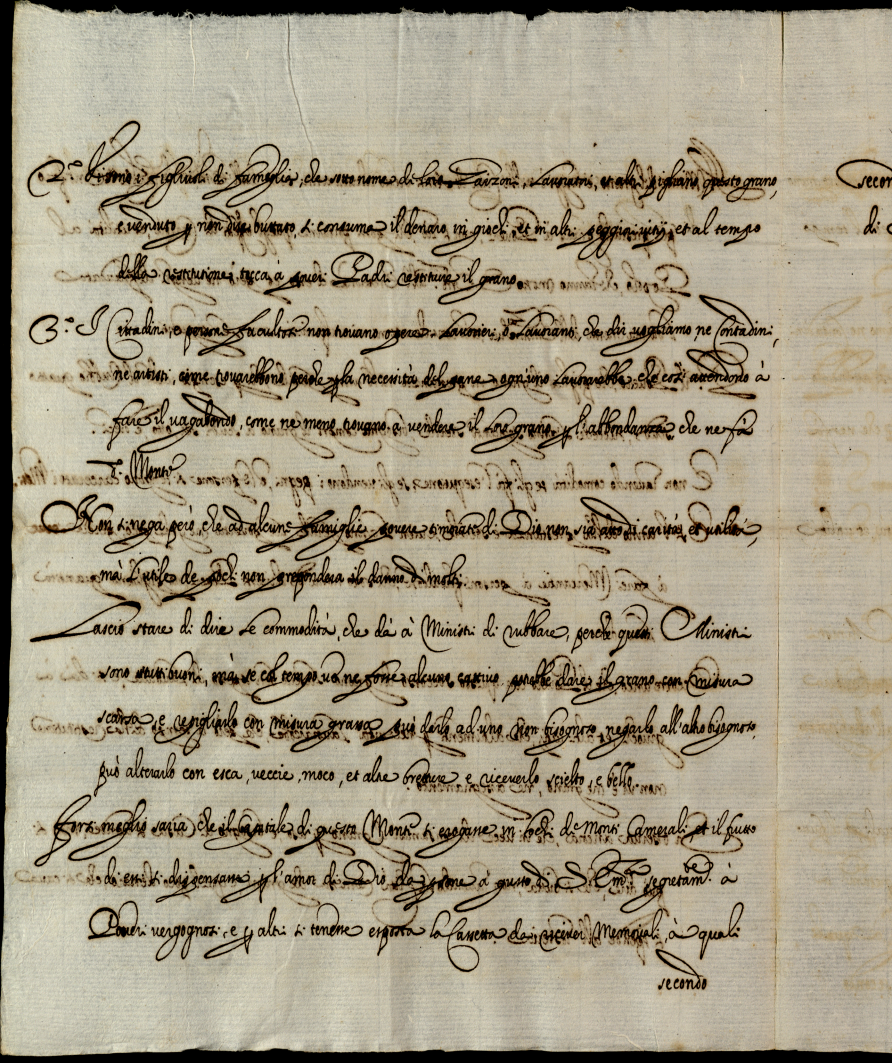 2.º Vi sono i figliuoli di fameglia, che sotto nome de loro Garzoni, Lavoranti, et altri pigliano questo grano,
e venduto p non dire buttato, si consuma il denaro in giochi, et in altri peggiori vitij, et al tempo
della restitutione, tocca à poveri Padri restituire il grano.
3.º I Cittadini, e persone facultose non trovano opere, Lavorieri, ò Lavoranti, che dir vogliamo, ne Contadini,
ne artisti, come trovarebbono perche p la necessità del pane ogn'uno Lavorarebbe, che così attendono à
fare il vagabondo, come ne meno trovano à vendere il Loro grano p l'abbondanza che ne fà
d.º Monte
Non si nega però, che ad alcune famiglie povere timorate di Dio non sia atto di carità, et utilità,
mà l'utile de pochi non prepondera il danno di molti.
Lascio stare di dire Le commodità, che dà à Ministri di rubbare, perche questi Ministri
sono tutti buoni, mà se col tempo ve ne fosse alcuno cattivo potrebbe dare il grano con misura
scarsa, e repigliarlo con misura grassa, può darlo ad uno non bisognoso, negarlo all'altro bisognoso,
può alterarlo con esca, veccie, moco, et altre brutture e riceverlo scielto, e bello.
Forsi meglio saria che il capitale di questo Monte si erogasse in lochi de Monti Camerali, et il frutto
di essi si dispensasse p l'amor di Dio da psone à gusto di S. Em.za segretam.te à
Poveri vergognosi, e p altri si tenesse esposta la Cassetta da ricever Memoriali, à quali
secondo
secon
di